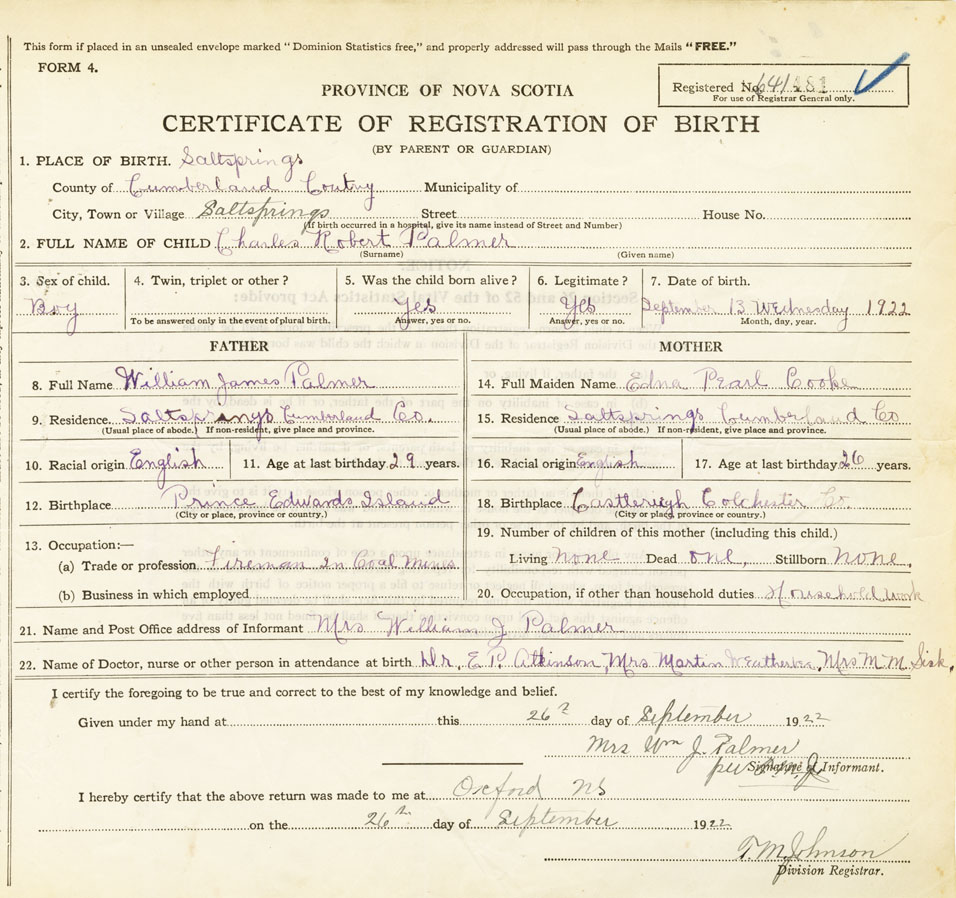 This form if placed in an unsealed envelope marked "Dominion Statistics free," and properly addressed will pass through the Mails "FREE."
FORM 4.
Registered No.
For use of Registrar General only.
PROVINCE OF NOVA SCOTIA
CERTIFICATE OF REGISTRATION OF BIRTH
(BY PARENT OR GUARDIAN)
1. PLACE OF BIRTH. Saltsprings
County of Cumberland Coutny Municipality of
City, Town or Village Saltsprings Street House No.
(If birth occurred in a hospital, give its name instead of Street and Number)
2. FULL NAME OF CHILD Charles Robert Palmer
(Surname) (Given name)
3. Sex of child. 4. Twin, triplet or other? 5. Was the child born alive? 6. Legitimate? 7. Date of birth.
Boy Yes Yes September 13 Wednesday 1922
To be answered only in the event of plural birth. Answer, yes or no. Answer, yes or no. Month, day, year.
FATHER MOTHER
8. Full Name William James Palmer 14. Full Maiden Name Edna Pearl Cooke
9. Residence Saltsprings Cumberland Co. 15. Residence Saltsprings Cumberland Co
(Usual place of abode.) If non-resident, give place and province. (Usual place of abode.) If non-resident, give place and province.
10. Racial origin English 11. Age at last birthday 29 years. 16. Racial origin English 17. Age at last birthday 26 years.
12. Birthplace Prince Edwards Island 18. Birthplace Castlereigh Colchester Co.
(City or place, province or country.) (City or place, province or country.)
13. Occupation:— 19. Number of children of this mother (including this child.)
(a) Trade or profession Fireman in Coal Mines Living none Dead one. Stillborn none.
(b) Business in which employed 20. Occupation, if other than household duties Household work
21. Name and Post Office address of Informant Mrs William J Palmer
22. Name of Doctor, nurse or other person in attendance at birth Dr. E. P. Atkinson, Mrs Martin Weatherbee, Mrs M. M. Sisk.
I certify the foregoing to be true and correct to the best of my knowledge and belief.
Given under my hand at this 26 day of September 1922
Mrs Wm J. Palmer
per
Signature of Informant.
I hereby certify that the above return was made to me at Oxford NS
on the 26 day of September 1922
T. M. Johnson
Division Registrar.